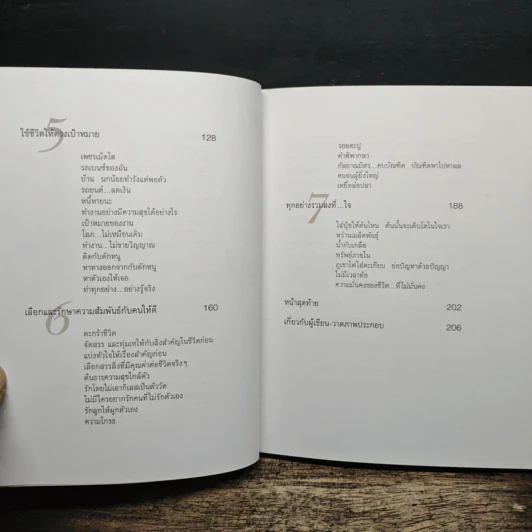 5
ใช้ชีวิตให้ตรงเป้าหมาย 128
เพชรเม็ดโต
รถเบนซ์ของฉัน
บ้าน นกน้อยทำรังแต่พอตัว
รถยนต์...ลดเงิน
หนี้หายนะ
ทำงานอย่างมีความสุขได้อย่างไร
เป้าหมายของงาน
โลภ...ไม่เหมือนเดิม
ทำงาน...ไม่ขายวิญญาณ
ติดกับดักหนู
หาทางออกจากกับดักหนู
หาตัวเองให้เจอ
ทำทุกอย่าง...อย่างรู้จริง
6
เลือกและรักษาความสัมพันธ์กับคนให้ดี 160
ตะกร้าชีวิต
จัดสรร และทุ่มเทให้กับสิ่งสำคัญในชีวิตก่อน
แบ่งหัวใจให้เรื่องสำคัญก่อน
เลือกสรรสิ่งที่มีคุณค่าต่อชีวิตจริงๆ
ต้นธารความสุขใกล้ตัว
รักโดยไม่เอากิเลสเป็นตัววัด
ไม่มีใครอยากรักคนที่ไม่รักตัวเอง
รักลูกให้ผูกตัวเอง
ความโกรธ
รอยตะปู
คำพิพากษา
กัลยาณมิตร...คบบัณฑิต บัณฑิตพาไปหาผล
คบจนผู้ยิ่งใหญ่
เหยื่อล่อปลา
7
ทุกอย่างรวมลงที่...ใจ 188
ใส่ปุ๋ยให้ต้นไหน ต้นนั้นจะเติบโตในใจเรา
หว่านเมล็ดพันธุ์
น้ำกับเกลือ
ทรัพย์ภายใน
ภูเขาไฟใส่ตะเกียบ ย่อปัญหาด้วยปัญญา
ไม่มีเวลาท้อ
ความมั่นคงของชีวิต...ที่ไม่มั่นคง
หน้าสุดท้าย 202
เกี่ยวกับผู้เขียน-วาดภาพประกอบ 206